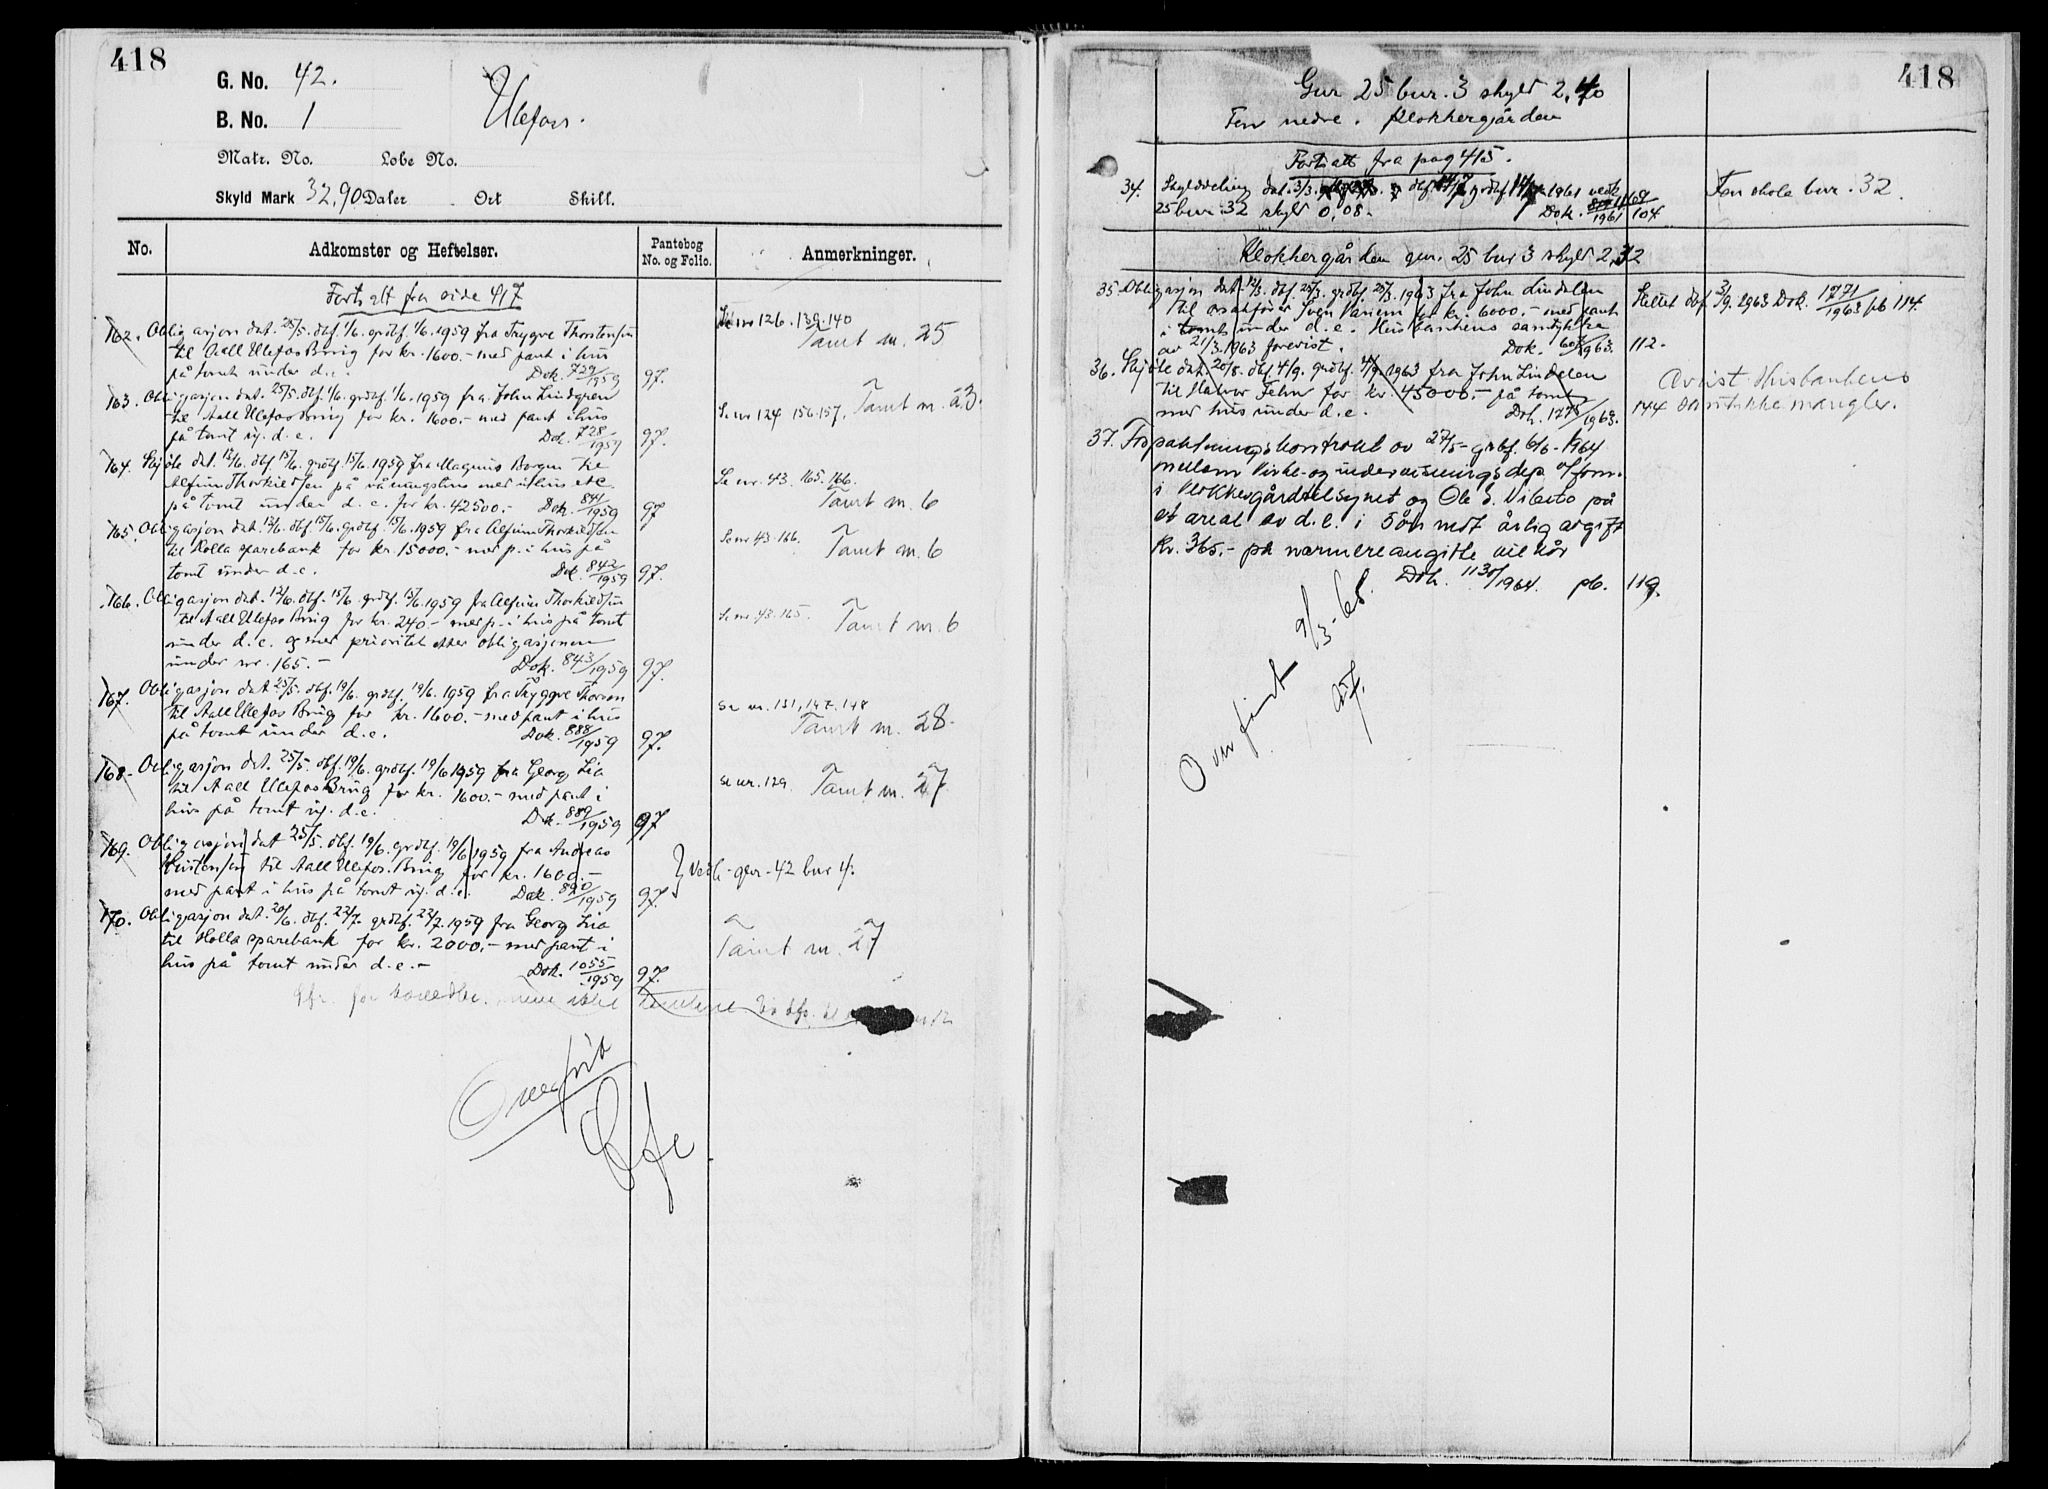 418
G. No. 42.
B. No. 1
Ulefoss.
Matr. No. Løbe No.
Skyld Mark 32,90 Daler Ort Skill.
No. Adkomster og Heftelser. Pantebog No. og Folio. Anmerkninger.
Fortsatt fra side 417
162. Obligasjon dat. 25/5. dbf. 1/6. grdbf. 1/6. 1959 fra Trygve Thorstensen
til Aall Ulefos Brug for kr. 1600.- med pant i hus
på tomt under d.e. Dok. 729/1959 97.
Se nr 126. 139. 140
Tomt nr. 25
163. Obligasjon dat. 25/5. dbf. 1/6. grdbf. 1/6. 1959 fra John Lindgren
til Aall Ulefos Brug for kr. 1600.- med pant i hus
på tomt u. d.e. Dok. 728/1959 97.
Se nr 124 156. 157. Tomt nr. 23.
164. Skjøte dat. 12/6. dbf. 15/6. grdbf. 15/6. 1959 fra Magnus Borgen til
Alfinn Thorkildsen på våningshus med uthus etc
på tomt under d.e. for kr. 42500.- Dok. 841/1959 97
Se nr. 43. 165. 166.
Tomt nr. 6
165. Obligasjon dat. 12/6. dbf. 15/6. grdbf. 15/6. 1959 fra Alfinn Thorkildsen
til Holla sparebank for kr. 15000.- med p. i hus på
tomt under d.e. Dok. 842/1959 97.
Se nr 43. 166. Tomt nr. 6
166. Obligasjon dat. 12/6. dbf. 15/6. grdbf. 15/6. 1959 fra Alfinn Thorkildsen
til Aall Ulefos Brug for kr. 240.- med p. i hus på tomt
under d.e. og med prioritet etter obligasjonen
under nr. 165.- Dok. 843/1959 97.
Se nr 43. 165. Tomt nr. 6
167. Obligasjon dat. 25/5. dbf. 19/6. grdbf. 19/6. 1959 fra Tryggve Thorsen
til Aall Ulefos Brug for kr. 1600.- med pant i hus
på tomt under d.e. Dok. 888/1959 97.
Se nr. 131, 147. 148
Tomt nr. 28.
168. Obligasjon dat. 25/5. dbf. 19/6. grdbf. 19/6 1959 fra Georg Lia
til Aall Ulefos Brug for kr. 1600.- med pant i
hus på tomt u. d.e. Dok. 889/1959 97
Se nr. 129 Tomt nr. 27
169. Obligasjon dat 25/5. dbf. 19/6. grdbf. 19/6 1959 fra Andreas
til Aall Ulefos Brug for kr. 1600.-
med pant i hus på tomt u. d.e. Dok. 890/1959 97.
Vedk. gnr. 42 bnr 4.
170. Obligasjon dat. 20/6. dbf. 22/7. grdbf. 22/7. 1959 fra Georg Lia
til Holla sparebank for kr. 2000.- med pant i
hus på tomt under d.e.- Dok. 1055/1959 97.
Tomt nr. 27
Overført
418
Gnr 25 bnr. 3 skyld 2,40
Fen nedre. Klokkergården
Fortsatt fra pag 415.
34. Skylddeling dat. 3/3. dbf. 14/7 grdbf. 14/7 1961 vedk
25 bnr. 32 skyld 0,08.- Dok. 1961 104
Fen skole bnr. 32.
Klokkergården gnr. 25 bnr 3 skyld 2,32
35. Obligasjon dat. 12/3. dbf. 25/3. grdbf. 25/3. 1963 fra John Lindelen
til sakfører Sven for kr. 6000.- med pant
i tomt under d.e. Husbankens samtykke
av 21/3. 1963 forevist. Dok. 1963. 112.
Slettet dbf. 3/9. 1963 Dok. 1271/1963 pb 114.
36. Skjøte dat. 20/8. dbf. 4/9. grdbf. 4/9. 1963 fra John Lindelen
til Halvor Fehn for kr. 45000.- på tomt
med hus under d.e. Dok. 1963. 144
Avvist. Husbankens
samtykke mangler.
37. Forpaktningskontrakt av 27/5- grbf. 6/6- 1964
mellem Kirke- og undervisningsdep. v/form.
i Klokkergårdtilsynet og Ole S. Vibeto på
et areal av d.e. i 5 år mot årlig avgift
kr. 365.- på nærmere angitte vilkår
Dok. 1130/1964. pb. 119.
Overført 9/3-68.